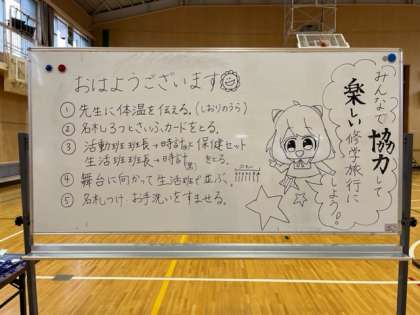 おはようございます
① 先生に体温を伝える。(しおりのうら)
② 名札ろうとさいふ、カードをとる。
③ 活動班班長→時計と保健セット
生活班班長→時計 をとる。
④ 舞台に向かって生活班で並ぶ。
⑤ 名札つけ、お手洗いをすませる。
みんなで
協力して
楽しい
修学旅行に
しよう。